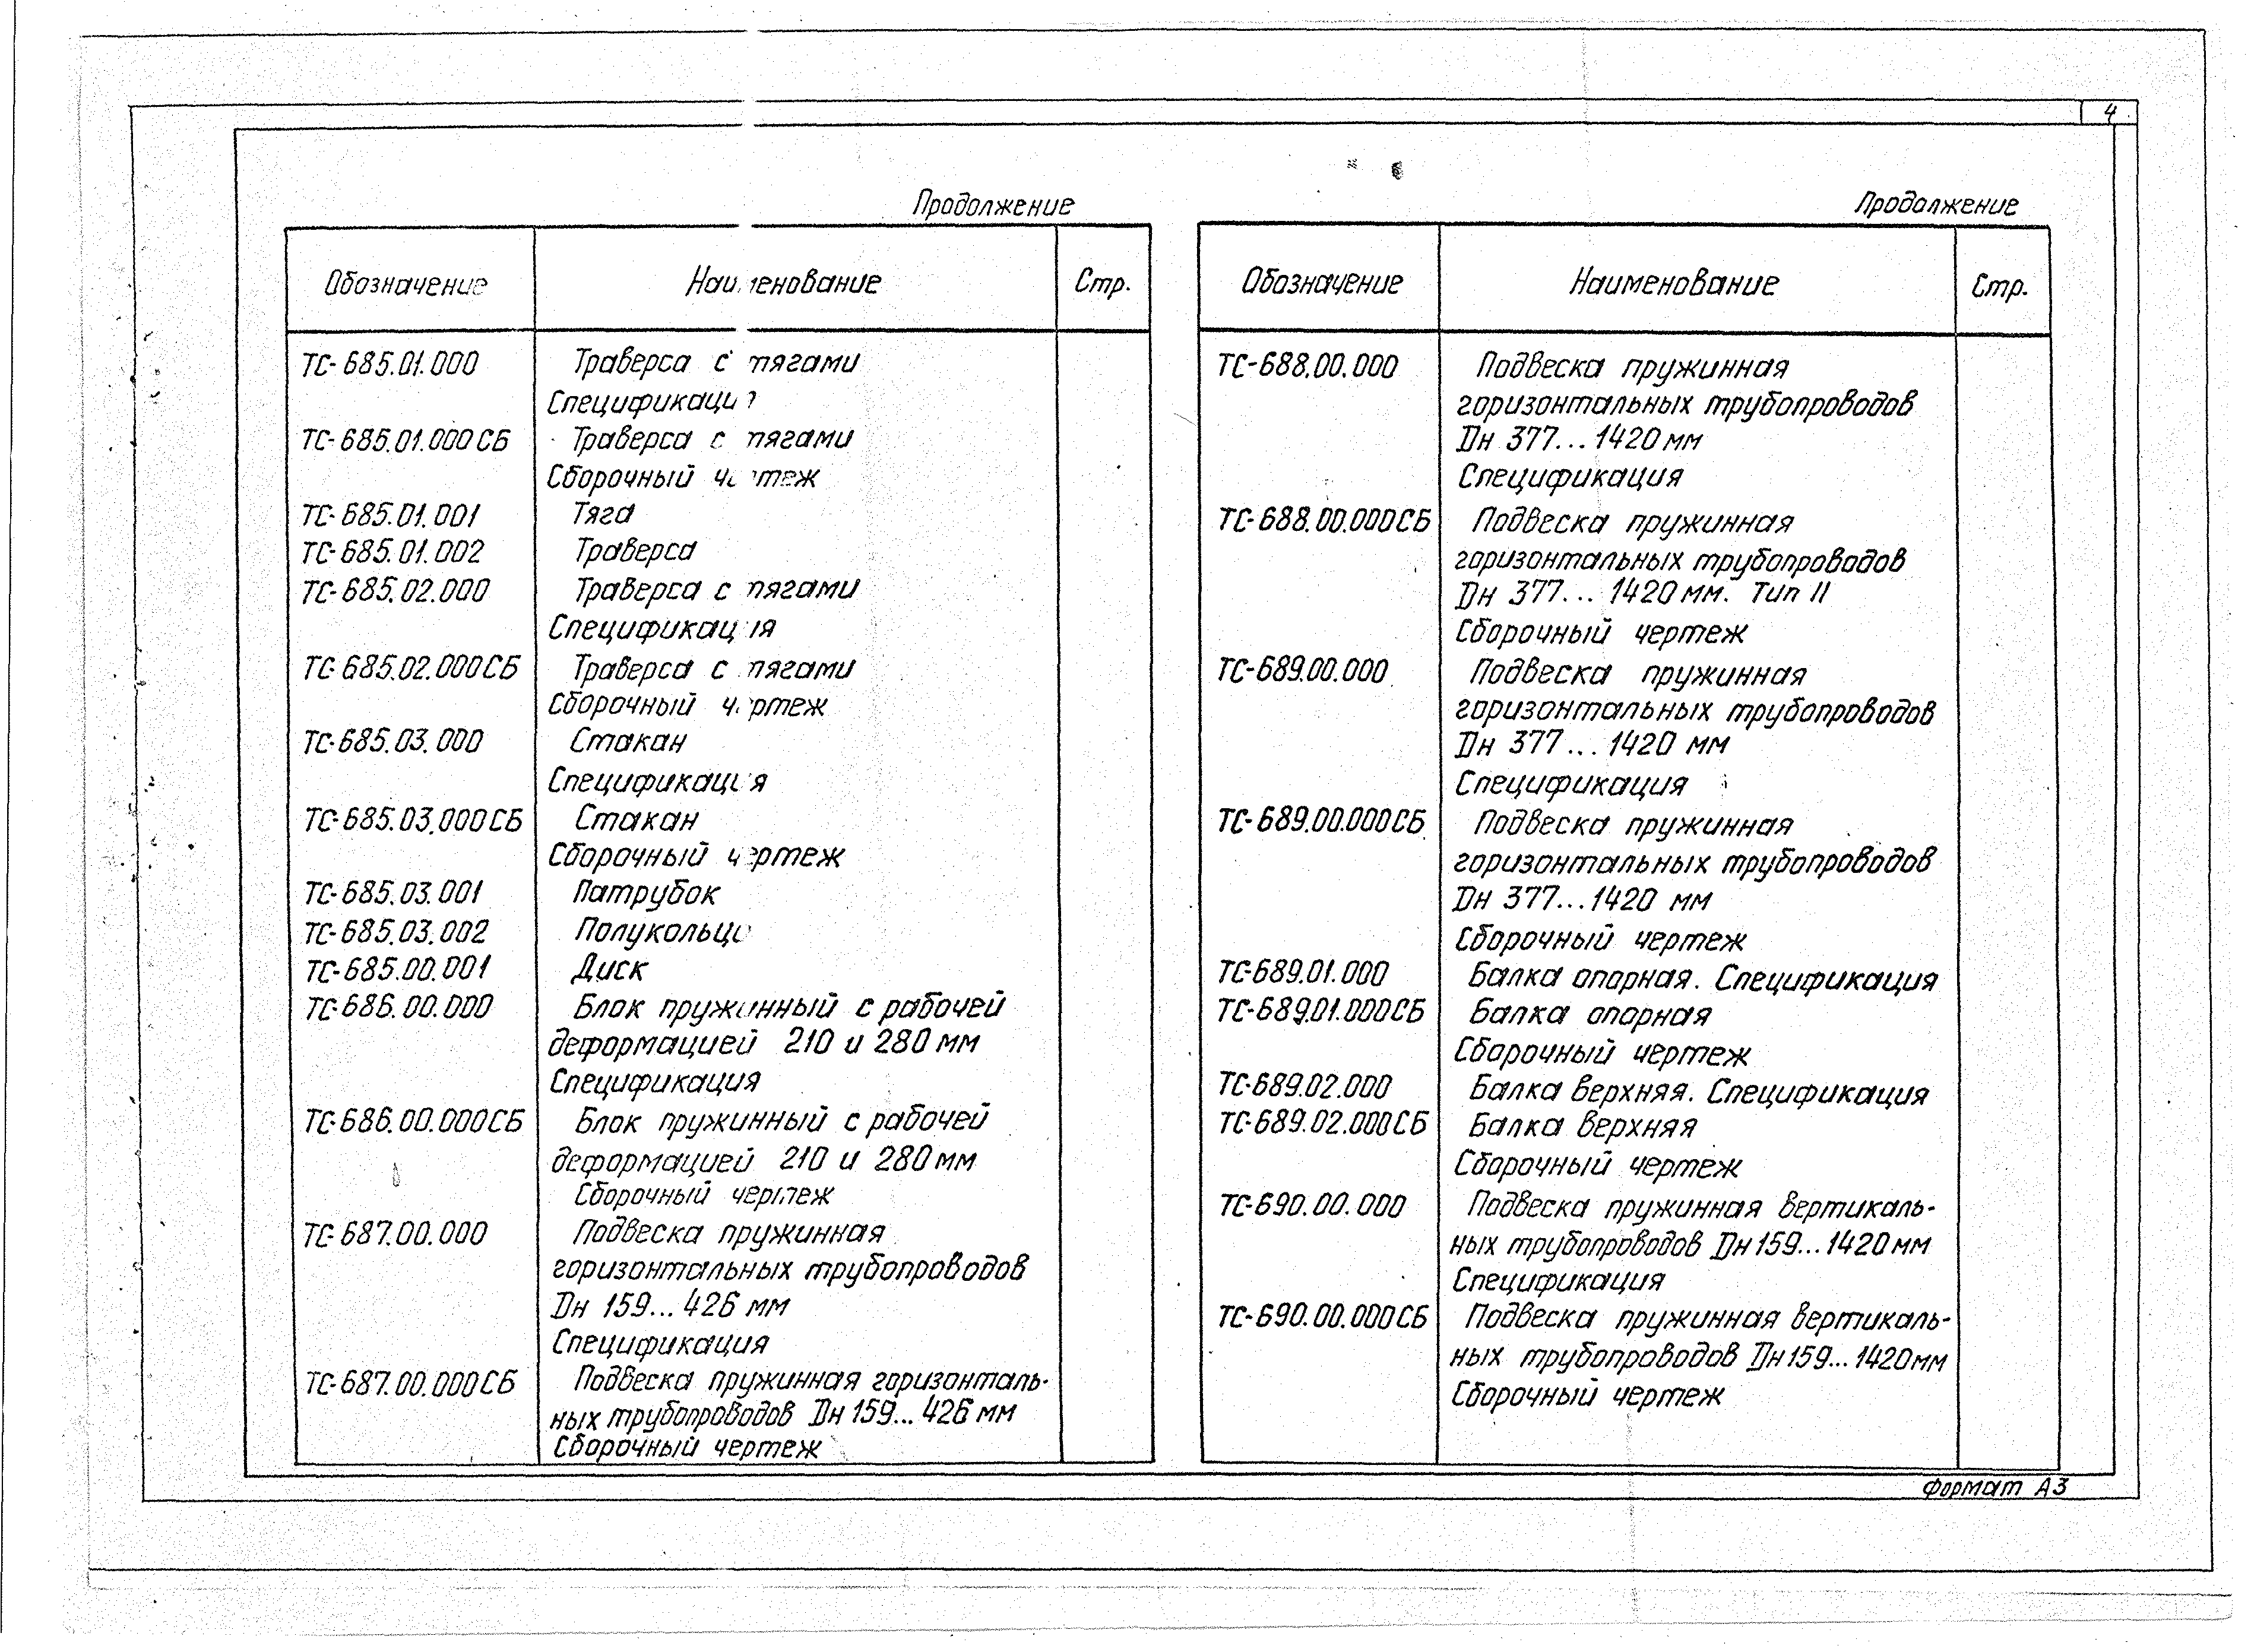 4
Продолжение
Обозначение Наименование Стр.
ТС-685.01.000 Траверса с тягами
Спецификация
ТС-685.01.000СБ Траверса с тягами
Сборочный чертеж
ТС-685.01.001 Тяга
ТС-685.01.002 Траверса
ТС-685.02.000 Траверса с тягами
Спецификация
ТС-685.02.000СБ Траверса с тягами
Сборочный чертеж
ТС-685.03.000 Стакан
Спецификация
ТС-685.03.000СБ Стакан
Сборочный чертеж
ТС-685.03.001 Патрубок
ТС-685.03.002 Полукольцо
ТС-685.00.001 Диск
ТС-686.00.000 Блок пружинный с рабочей
деформацией 210 и 280 мм
Спецификация
ТС-686.00.000СБ Блок пружинный с рабочей
деформацией 210 и 280 мм
Сборочный чертеж
ТС-687.00.000 Подвеска пружинная
горизонтальных трубопроводов
Дн 159... 426 мм
Спецификация
ТС-687.00.000СБ Подвеска пружинная горизонталь-
ных трубопроводов Дн 159... 426 мм
Сборочный чертеж
Продолжение
Обозначение Наименование Стр.
ТС-688.00.000 Подвеска пружинная
горизонтальных трубопроводов
Дн 377... 1420 мм
Спецификация
ТС-688.00.000СБ Подвеска пружинная
горизонтальных трубопроводов
Дн 377... 1420 мм. Тип II
Сборочный чертеж
ТС-689.00.000 Подвеска пружинная
горизонтальных трубопроводов
Дн 377... 1420 мм
Спецификация
ТС-689.00.000СБ Подвеска пружинная
горизонтальных трубопроводов
Дн 377...1420 мм
Сборочный чертеж
ТС-689.01.000 Балка опорная. Спецификация
ТС-689.01.000СБ Балка опорная
Сборочный чертеж
ТС-689.02.000 Балка верхняя. Спецификация
ТС-689.02.000СБ Балка верхняя
Сборочный чертеж
ТС-690.00.000 Подвеска пружинная вертикаль-
ных трубопроводов Дн 159... 1420 мм
Спецификация
ТС-690.00.000СБ Подвеска пружинная вертикаль-
ных трубопроводов Дн 159... 1420 мм
Сборочный чертеж
Формат А3